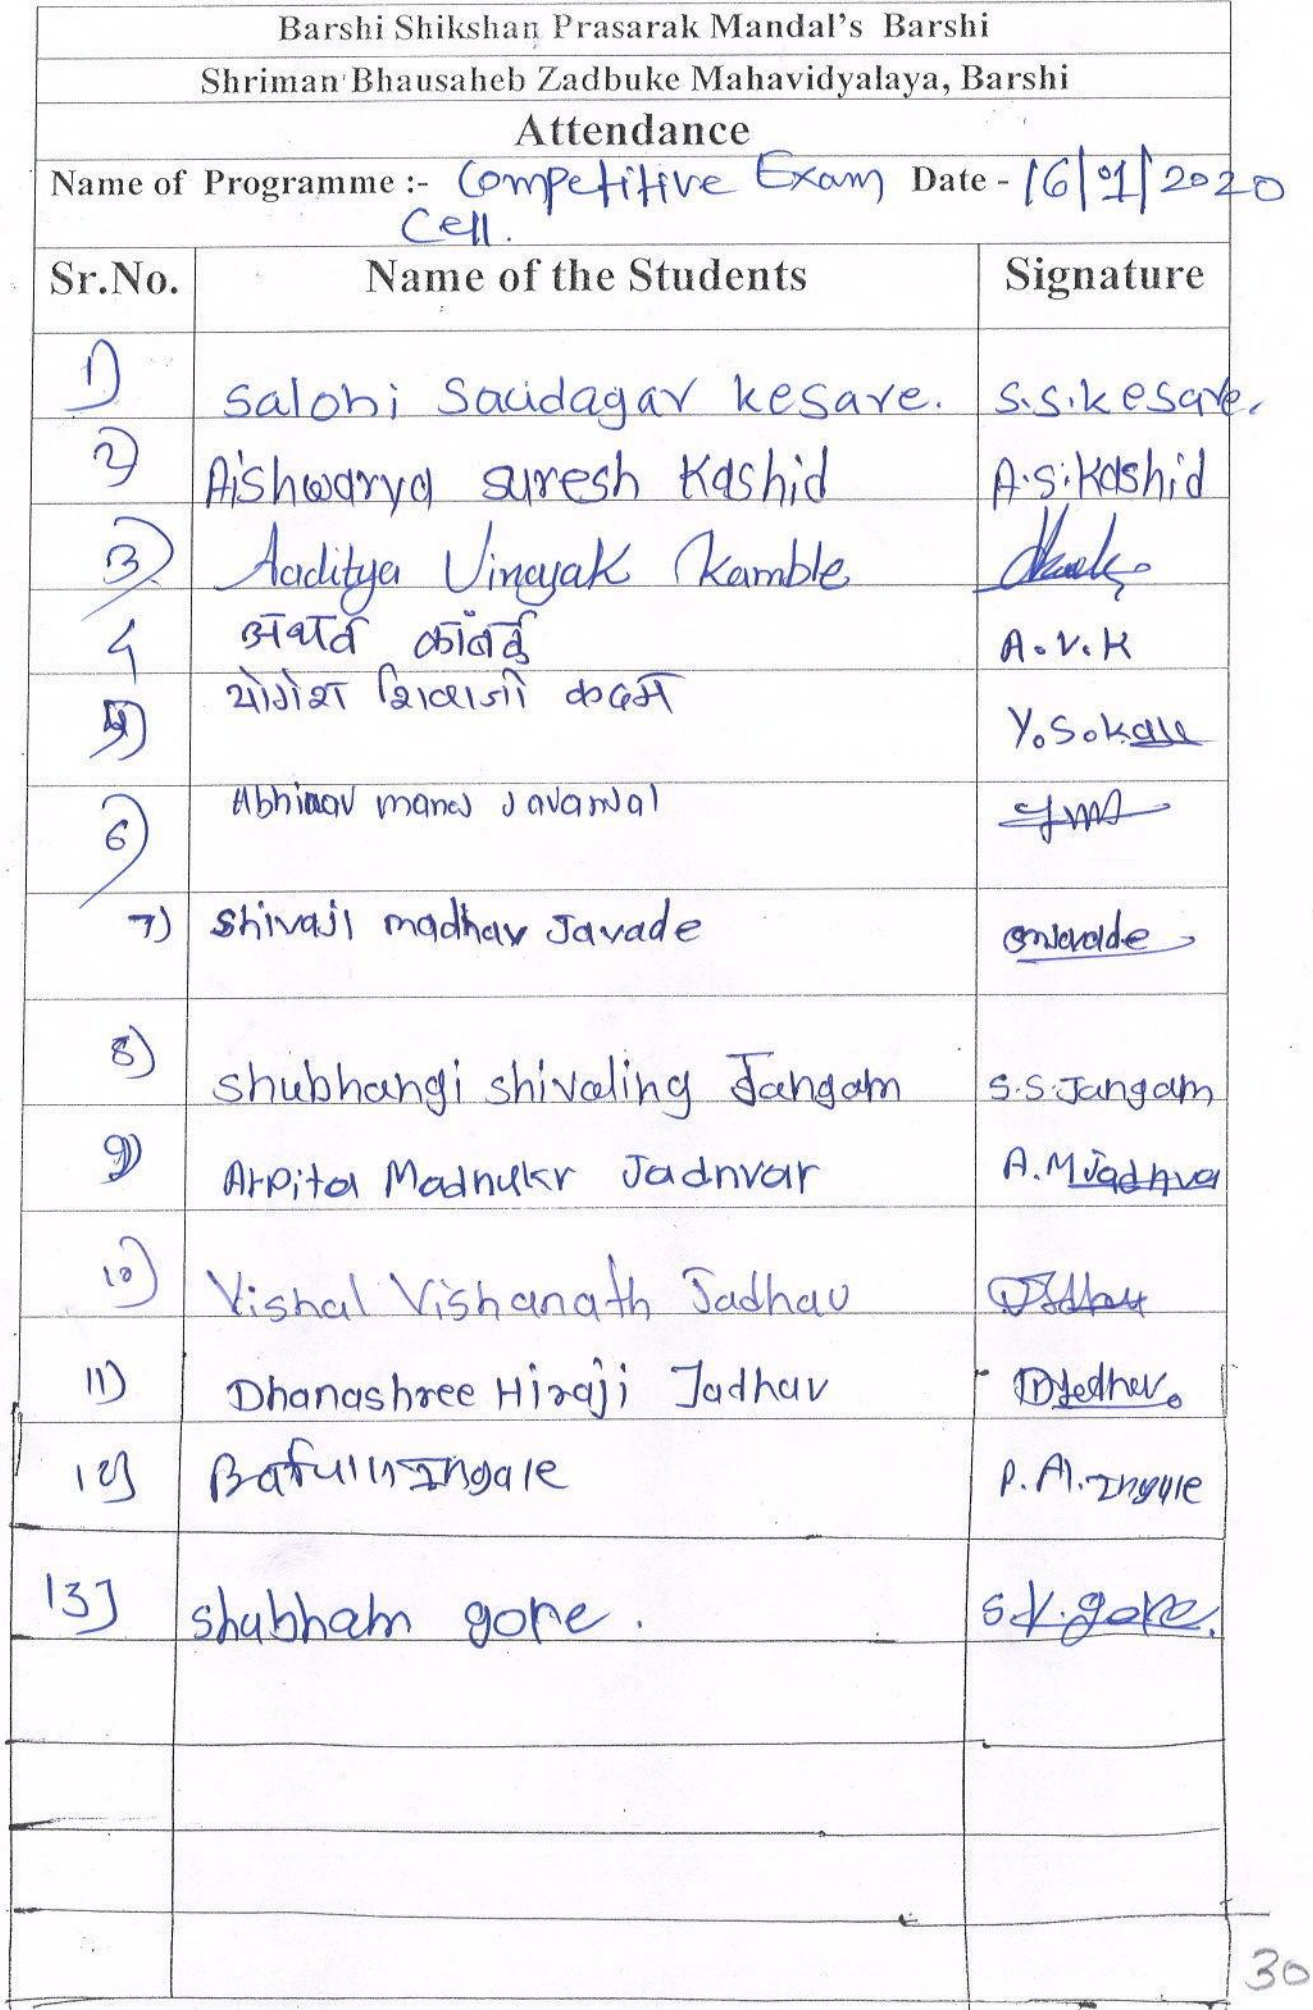 Barshi Shikshan Prasarak Mandal's Barshi
Shriman Bhausaheb Zadbuke Mahavidyalaya, Barshi
Attendance
Name of Programme :- Competitive Exam Date - 16/01/2020
Cell.
Sr.No. Name of the Students Signature
1) Saloni Saudagar kesare. S.S.kesare.
2) Aishwarya suresh Kashid A.S.Kashid
3) Aaditya Vinayak Kamble
4 अथर्व कांबळे A.V.K
5) योगेश शिवाजी कदम Y.S.Kadam
6) Abhinav manoj Javanjal
7) Shivaji madhav Javade
8) Shubhangi shivaling Jangam S.S.Jangam
9) Arpita Madnukr Jadnvar A.M.Jadnva
10) Vishal Vishanath Jadhav
11) Dhanashree Hiraji Jadhav DJadhav.
12) Ingale P.A.Ingale
13] Shubham gore. S.V.gore.
30